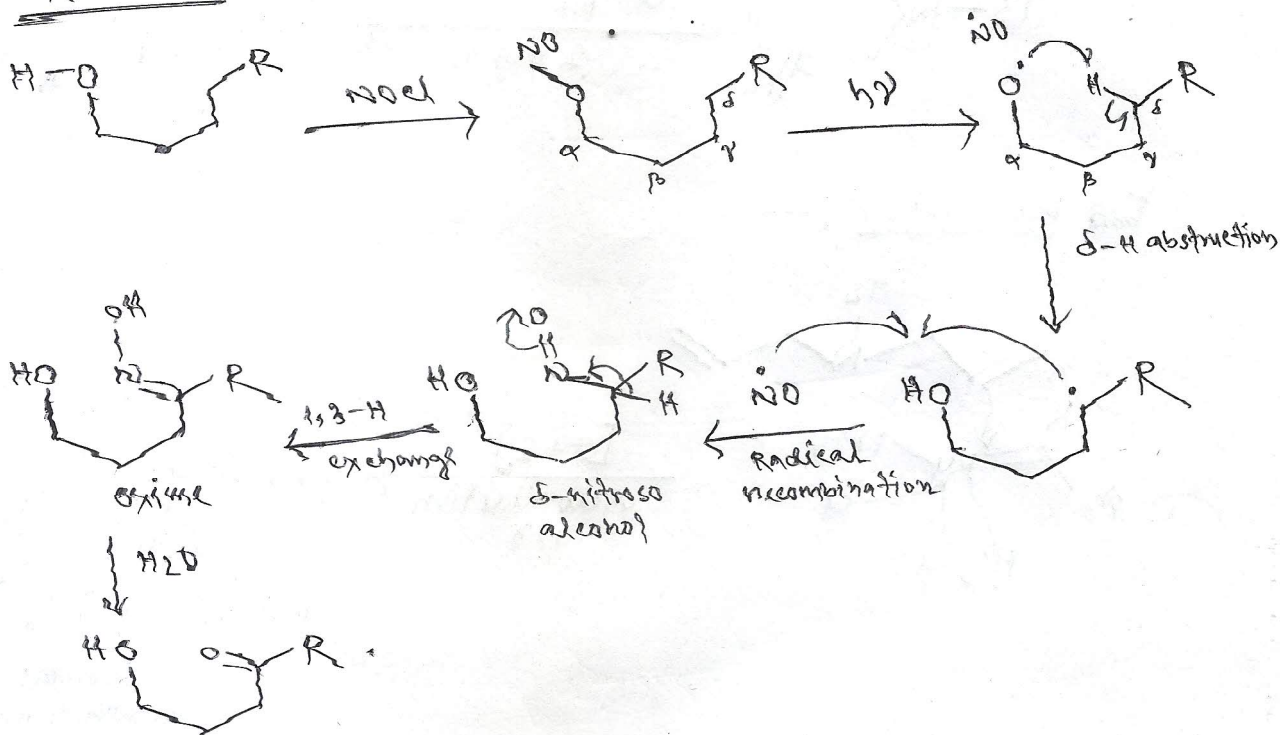 H-O
R
NOCl
NO
O
R
α
β
γ
δ
hν
ṄO
O
H
R
α
β
γ
δ
δ-H abstruction
HO
R
ṄO
Radical
recombination
O
H
N
HO
R
H
δ-nitroso
alcohol
1,3-H
exchange
OH
HO
N
R
oxime
H2O
HO
O
R